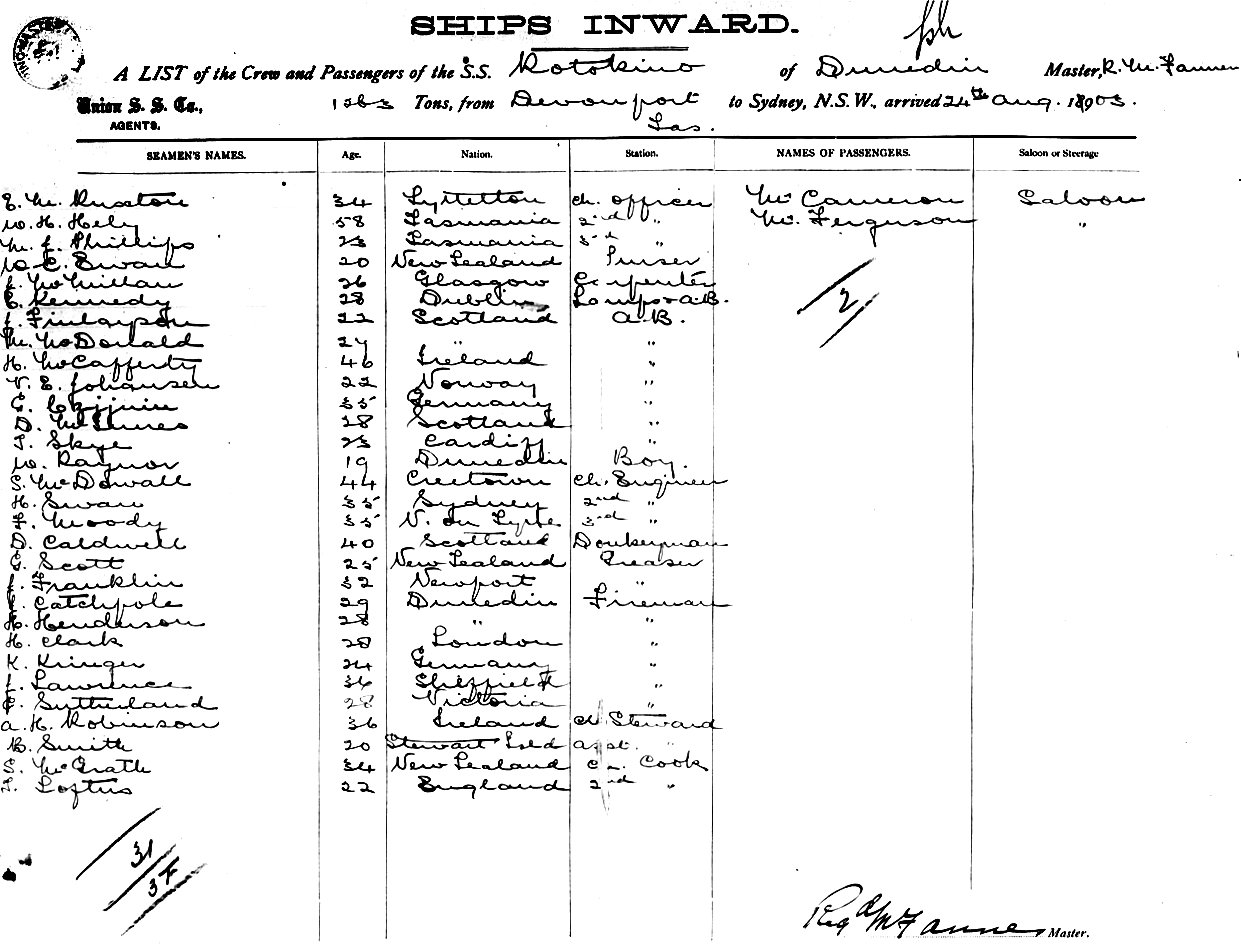 SHIPS INWARD.
A LIST of the Crew and Passengers of the S.S. Rotokino of Dunedin Master, R. McF
Union S. S. Co., Tons, from Devonport to Sydney, N.S.W., arrived 24th Aug. 1903.
AGENTS. Tas.
SEAMEN'S NAMES. Age. Nation. Station. NAMES OF PASSENGERS. Saloon or Steerage
E. M. Ruxton 34 Lyttelton Ch. Officer Mr Cameron Saloon
W. H. Hely 58 Tasmania 2nd " Mr. Ferguson "
M. J. Phillips 23 Tasmania 3rd "
Swan 20 New Zealand Purser
J. McMillan 26 Glasgow Carpenter
C. Kennedy 28 Dublin Lamps & A.B. 2
J. Finlayson 22 Scotland A.B.
McDonald 27 " "
H. McCafferty 46 Ireland "
V. E. Johansen 22 Norway "
35 Germany "
D. McInnes 28 Scotland "
T. Skye 23 Cardiff "
W. Raynor 19 Dunedin Boy.
S. McDowall 44 Creetown Ch. Engineer
H. Swan 35 Sydney 2nd "
F. Moody 35 3rd "
D. Caldwell 40 Scotland Donkeyman
E. Scott 25 New Zealand Greaser
J. Franklin 32 Newport "
Catchpole 29 Dunedin Fireman
H. Henderson 28 " "
H. Clark 28 London "
K. Kruger 24 Germany "
J. Lawrence 36 Sheffield "
Sutherland 28 Victoria "
A. H. Robinson 36 Ireland Ch. Steward
B. Smith 20 Stewart Isld asst. "
S. McGrath 34 New Zealand Ch. Cook
T. Loftus 22 England 2nd "
31
Regd McF Master.